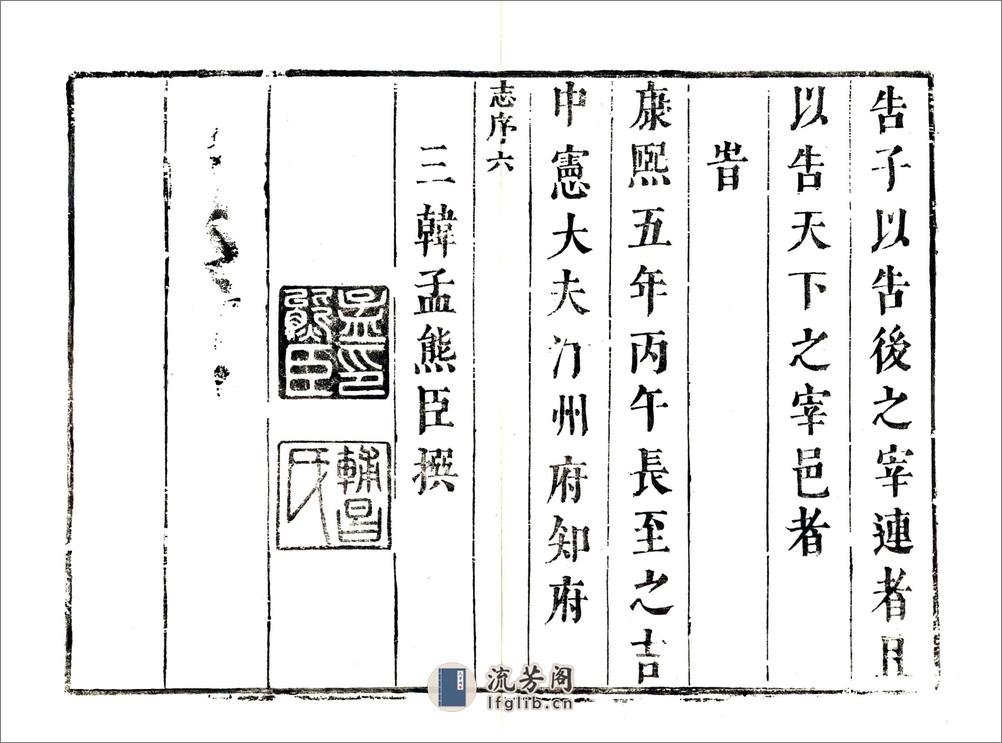 告子以告後之宰連者且
以告天下之宰邑者
旹
康熙五年丙午長至之吉
中憲大夫汀州府知府
志序六
三韓孟熊臣撰
孟印
熊臣
輔昌
氏
流芳阁
lfglib.cn